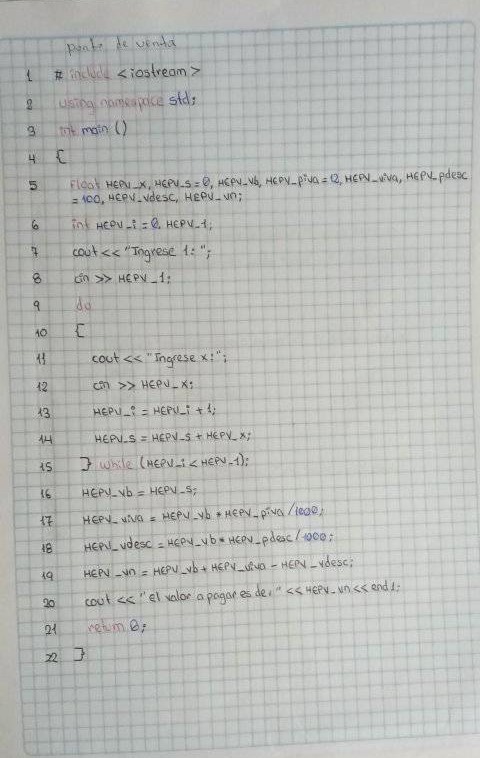 punto de venta
1 # include <iostream>
2 using namespace std;
3 int main ()
4 {
5 float HEPV_x, HEPV_s=0, HEPV_vb, HEPV_piva=12, HEPV_viva, HEPV_pdesc
=100, HEPV_vdesc, HEPV_vn;
6 int HEPV_i=0, HEPV_1;
7 cout << "Ingrese 1:";
8 cin >> HEPV_1;
9 do
10 {
11 cout << "Ingrese x:";
12 cin >> HEPV_x;
13 HEPV_i = HEPV_i + 1;
14 HEPV_s = HEPV_s + HEPV_x;
15 } while (HEPV_i < HEPV_1);
16 HEPV_vb = HEPV_s;
17 HEPV_viva = HEPV_vb * HEPV_piva /1000;
18 HEPV_vdesc = HEPV_vb * HEPV_pdesc /1000;
19 HEPV_vn = HEPV_vb + HEPV_viva - HEPV_vdesc;
20 cout << "el valor a pagar es de:" << HEPV_vn << endl;
21 return 0;
22 }